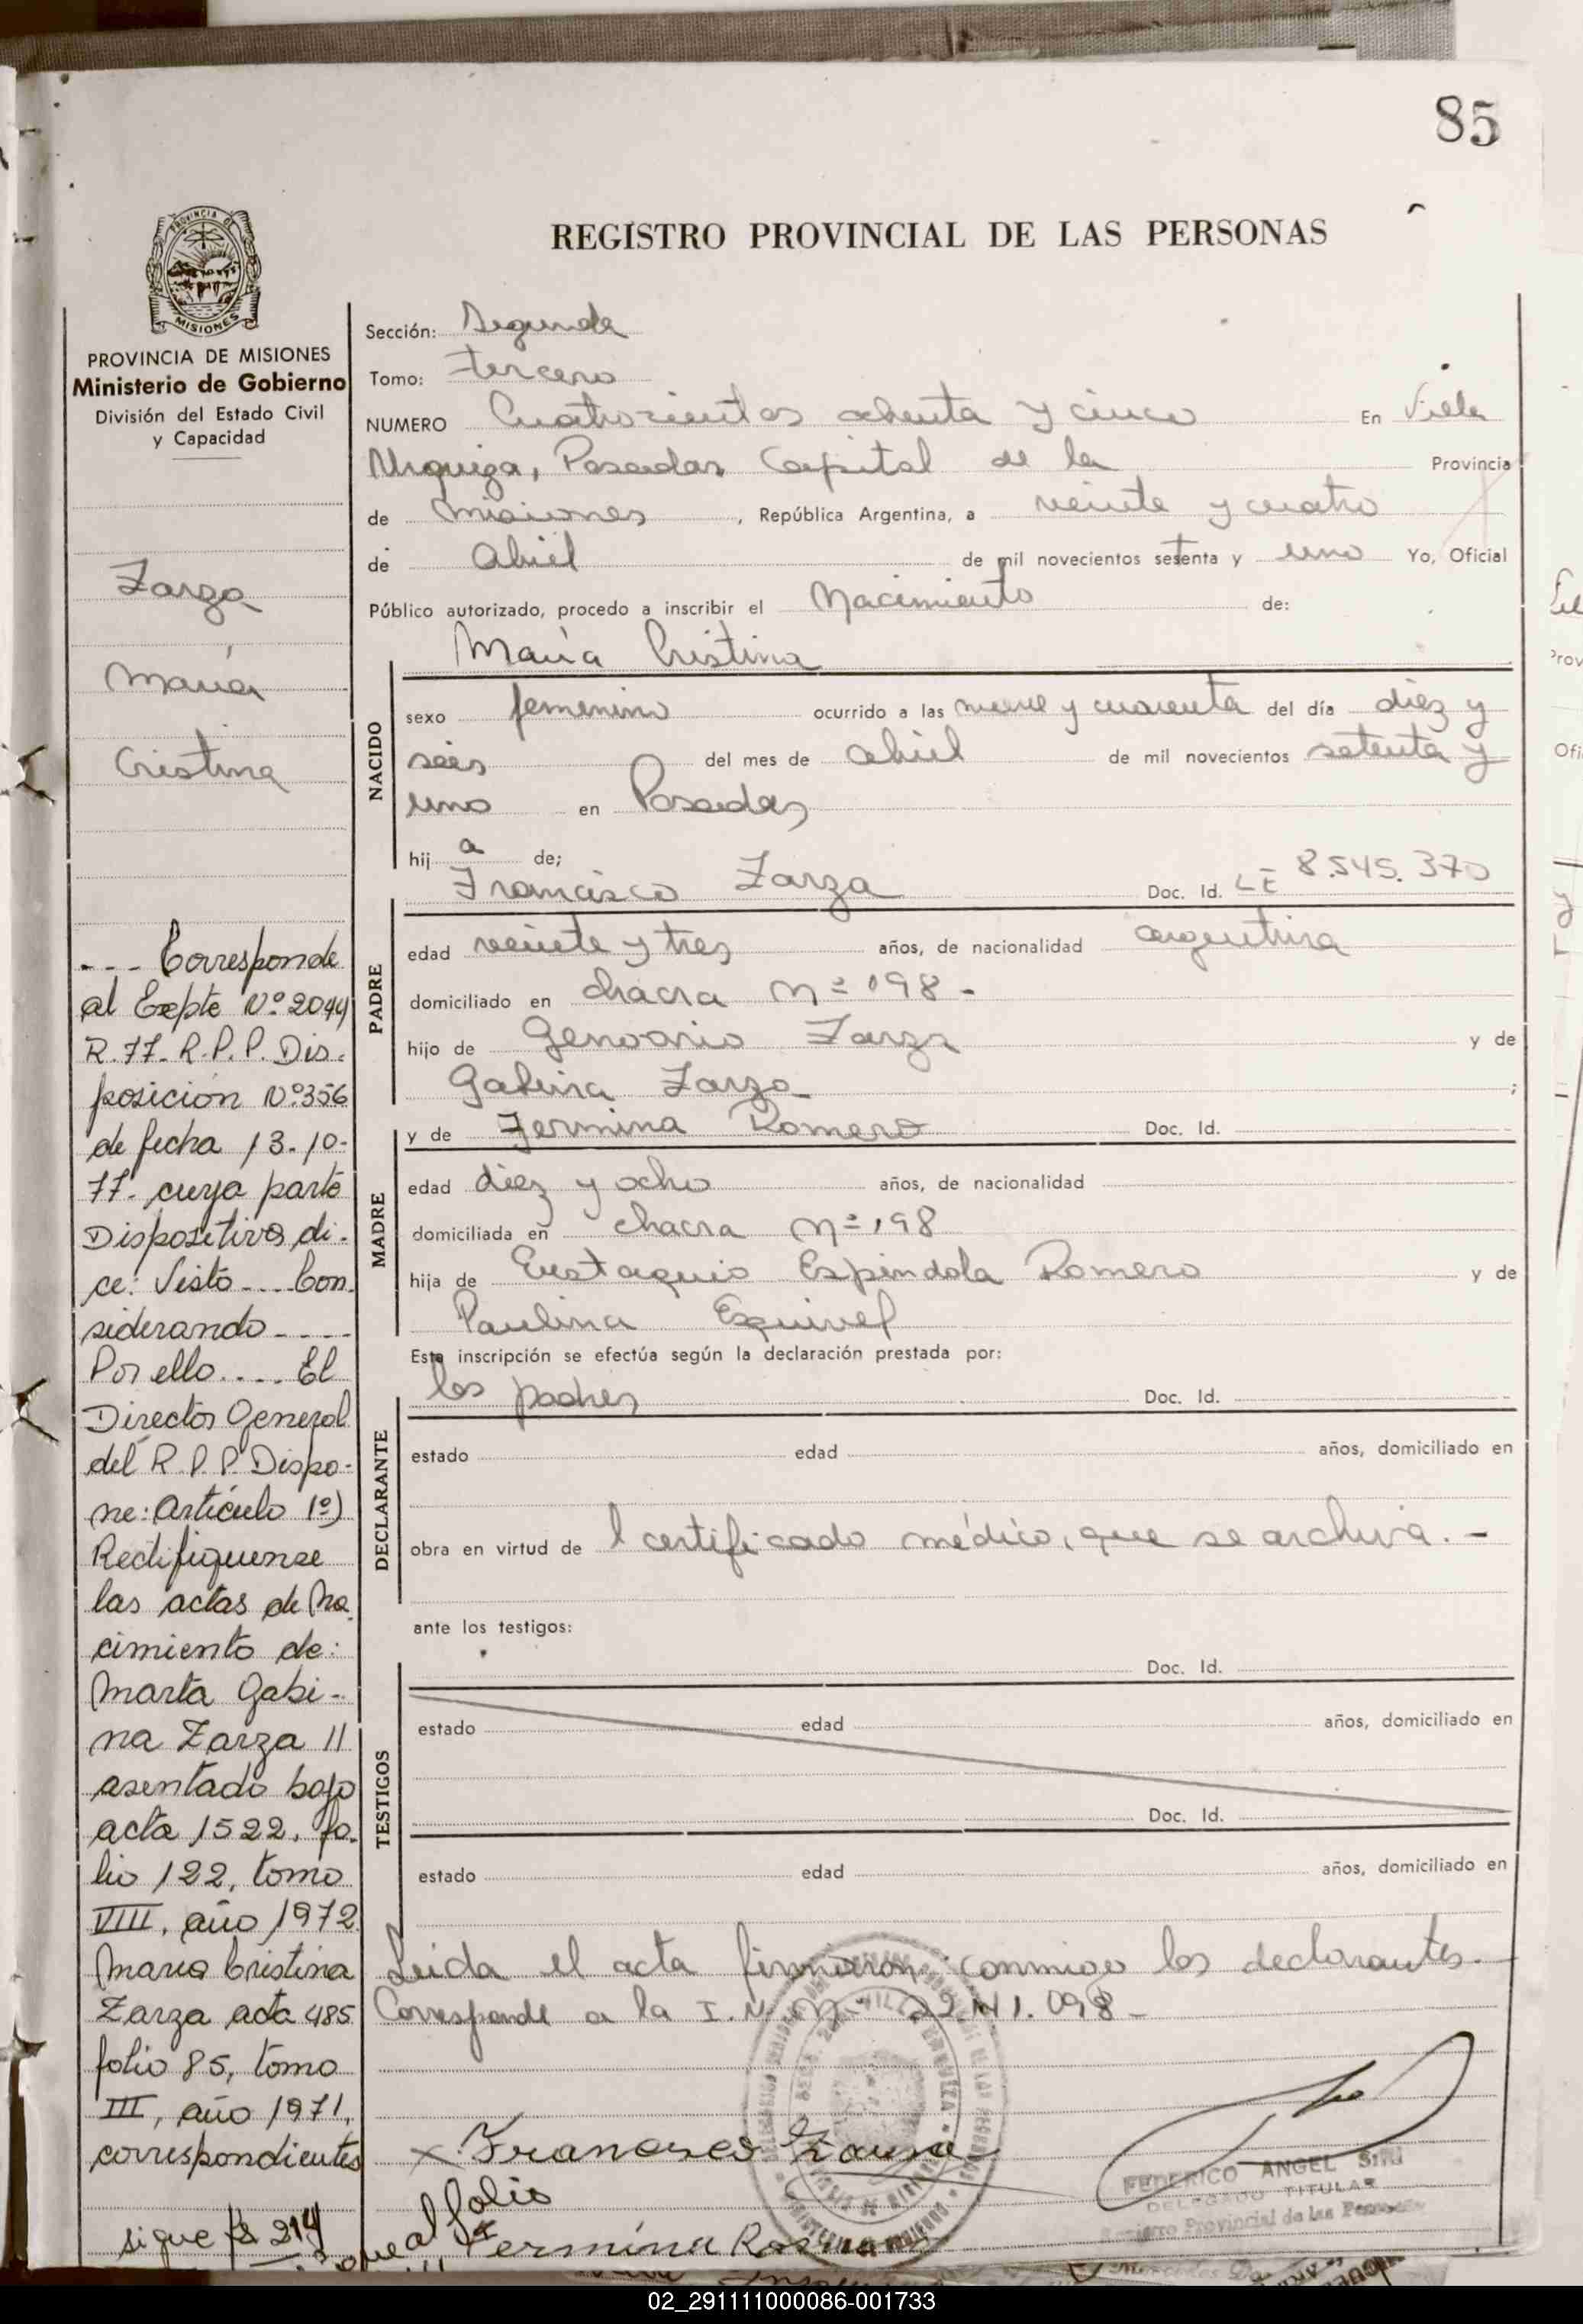 85
REGISTRO PROVINCIAL DE LAS PERSONAS
PROVINCIA DE
MISIONES
PROVINCIA DE MISIONES
Ministerio de Gobierno
División del Estado Civil
y Capacidad
Zarza
María
Cristina
- - - Corresponde
al Expte Nº 2044
R. 77- R.P.P. Dis-
posición Nº 356
de fecha 13-10-
77- cuya parte
Dispositiva di-
ce: Visto.... Con
siderando....
Por ello.... El
Director General
del R.P.P. Dispo-
ne: Artículo 1º)
Rectifiquense
las actas de Na
cimiento de:
Marta Gabi-
na Zarza //
asentado bajo
acta 1522, fo-
lio 122, tomo
VIII, año 1972
Maria Cristina
Zarza acta 485
folio 85, tomo
III, año 1971,
correspondientes
sigue fs 214
Sección: Segunda
Tomo: tercero
NUMERO Cuatrocientos ochenta y cinco En Villa
Urquiza, Posadas Capital de la Provincia
de Misiones, República Argentina, a veinte y cuatro
de Abril de mil novecientos setenta y uno Yo, Oficial
Público autorizado, procedo a inscribir el Nacimiento de:
María Cristina
NACIDO
sexo femenino ocurrido a las nueve y cuarenta del día diez y
seis del mes de abril de mil novecientos setenta y
uno en Posadas
hija de;
Francisco Zarza Doc. Id. LE 8.545.370
PADRE
edad veinte y tres años, de nacionalidad argentina
domiciliado en chacra nº 198-
hijo de Genoario Zarza y de
Gabina Zarza ;
y de Fermina Romero Doc. Id.
MADRE
edad diez y ocho años, de nacionalidad
domiciliada en chacra nº 198
hija de Eustaquio Espindola Romero y de
Paulina Esquivel
Esta inscripción se efectúa según la declaración prestada por:
los padres Doc. Id.
DECLARANTE
estado edad años, domiciliado en
obra en virtud de l certificado médico, que se archiva.-
ante los testigos:
Doc. Id.
TESTIGOS
estado edad años, domiciliado en
Doc. Id.
estado edad años, domiciliado en
Leida el acta firmaron conmigo los declarantes.-
Corresponde a la I.N. Nº 22.141.098-
Francisco Zarza
FEDERICO ANGEL
DELEGADO TITULAR
Registro Provincial de las Personas
al folio
Fermina
02_291111000086-001733